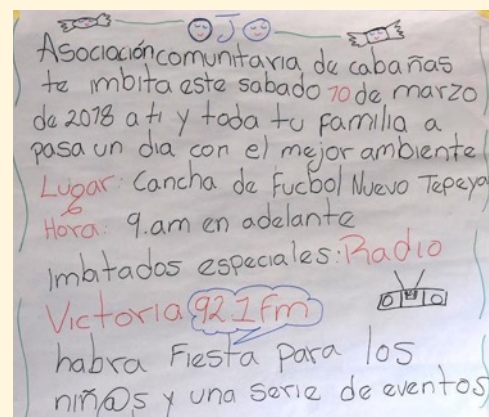 OJO
Asociación comunitaria de cabañas
te imbita este sabado 10 de marzo
de 2018 a ti y toda tu familia a
pasa un dia con el mejor ambiente
Lugar: Cancha de Fucbol Nuevo Tepeya
Hora: 9.am en adelante
imbitados especiales: Radio
Victoria 92.1 Fm
habra Fiesta para los
niñ@s y una serie de eventos